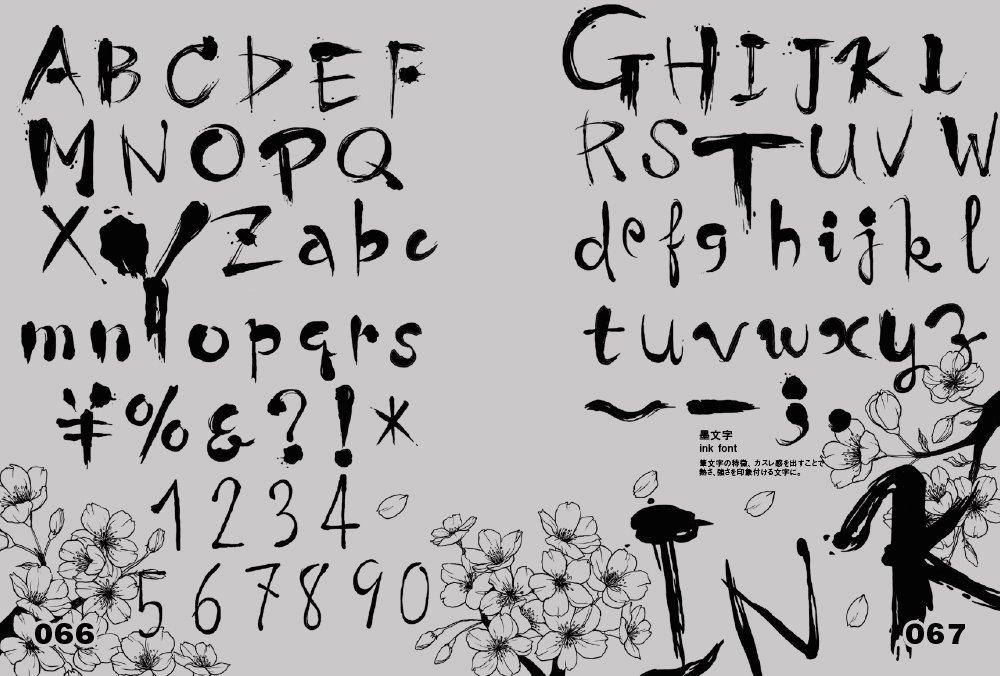 ABCDEF
MNOPQ
XYZabc
mnopqrs
¥%&?!*
1234
567890
066
GHIJKL
RSTUVW
defghijkl
tuvwxyz
~-;.
墨文字
ink font
筆文字の特徴、カスレ感を出すことで
熱さ、強さを印象付ける文字に。
INK
067